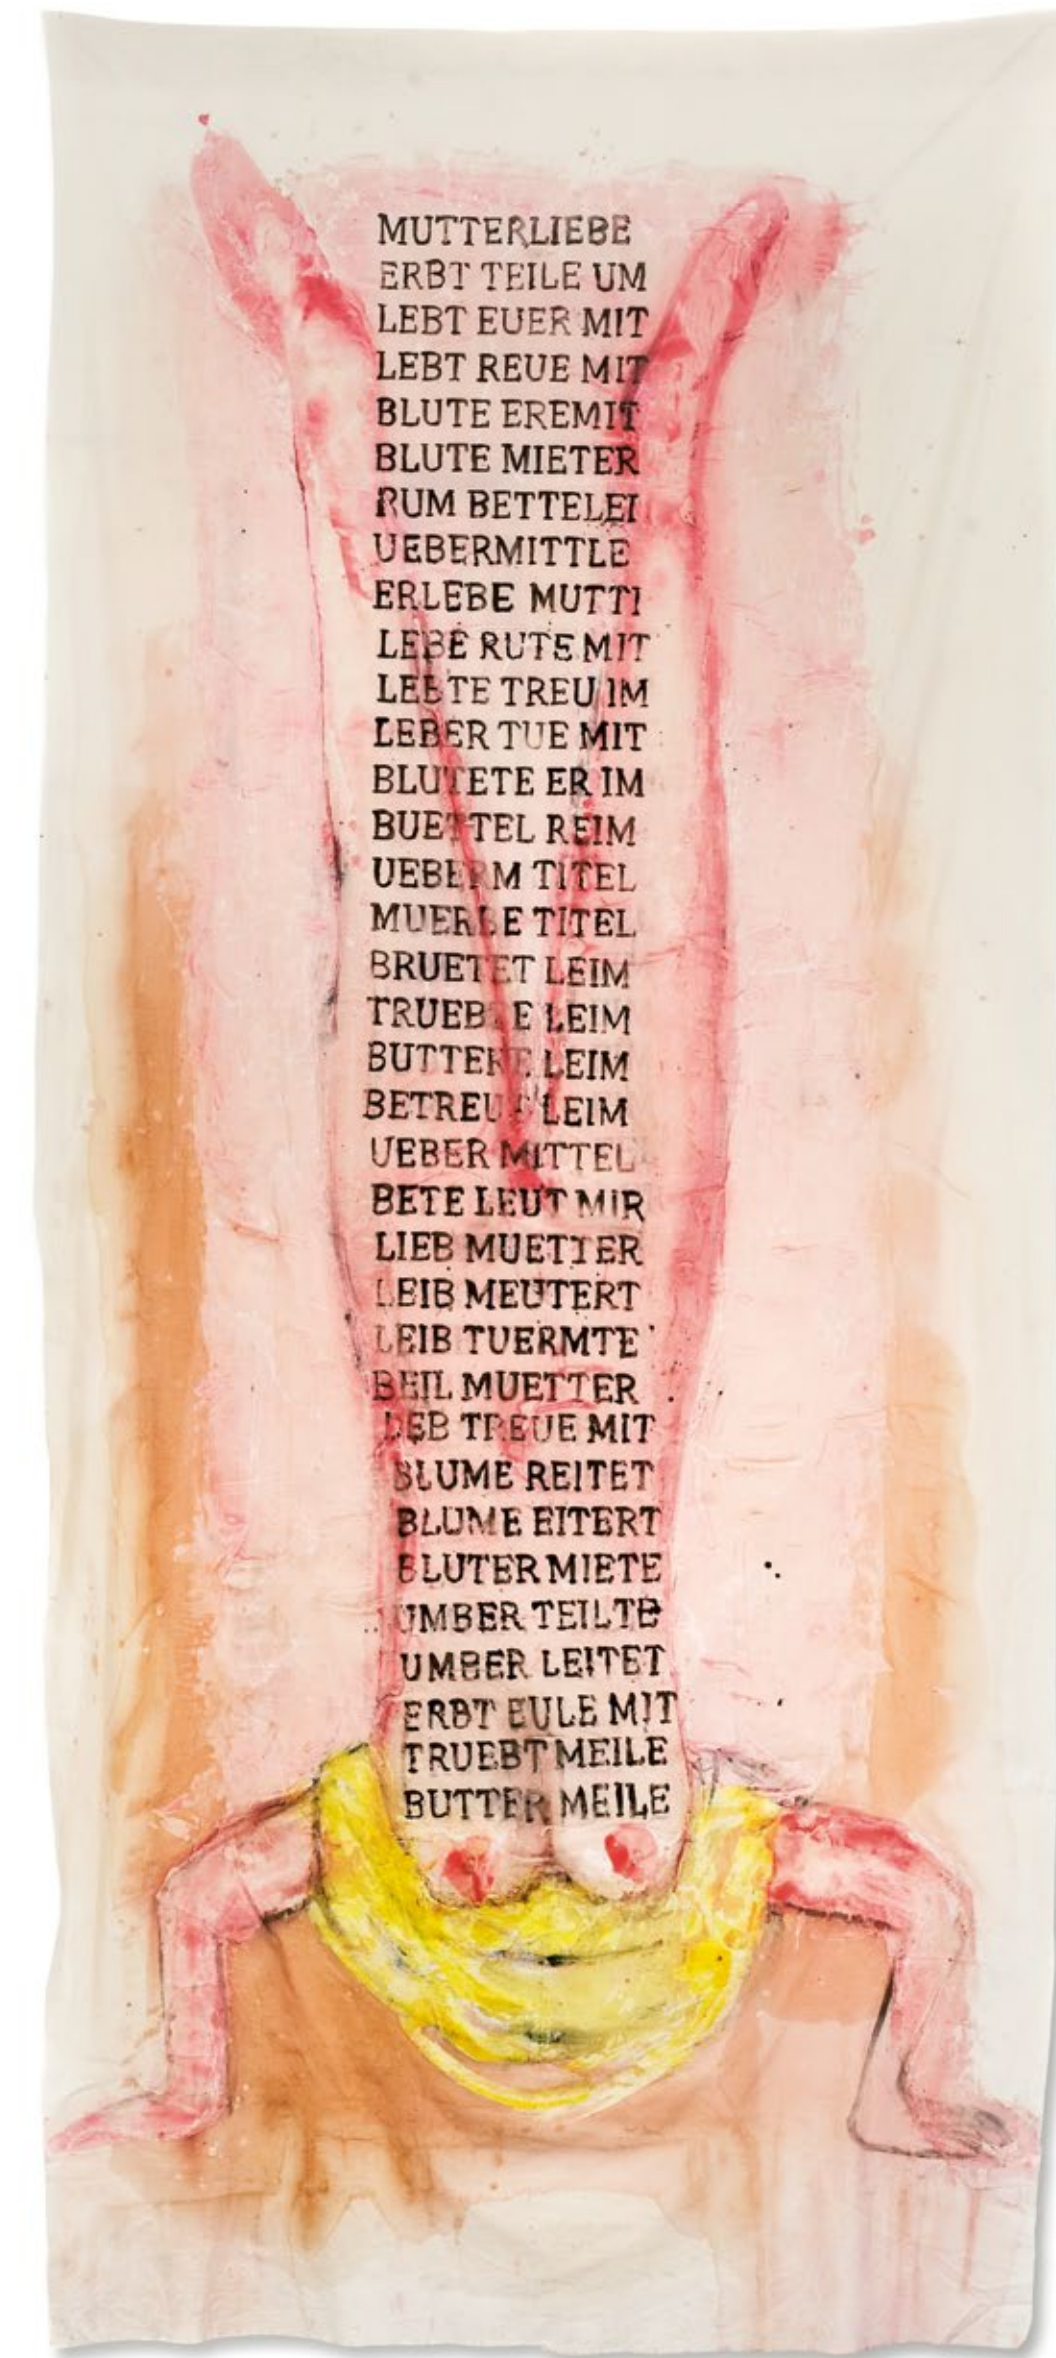 MUTTERLIEBE
ERBT TEILE UM
LEBT EUER MIT
LEBT REUE MIT
BLUTE EREMIT
BLUTE MIETER
RUM BETTELEI
UEBERMITTLE
ERLEBE MUTTI
LEBE RUTE MIT
LEBTE TREU IM
LEBER TUE MIT
BLUTETE ER IM
BUETTEL REIM
UEBERM TITEL
MUERBE TITEL
BRUETET LEIM
TRUEBTE LEIM
BUTTERE LEIM
BETREUT LEIM
UEBER MITTEL
BETE LEUT MIR
LIEB MUETTER
LEIB MEUTERT
LEIB TUERMTE
BEIL MUETTER
LEB TREUE MIT
BLUME REITET
BLUME EITERT
BLUTER MIETE
UMBER TEILTE
UMBER LEITET
ERBT EULE MIT
TRUEBT MEILE
BUTTER MEILE